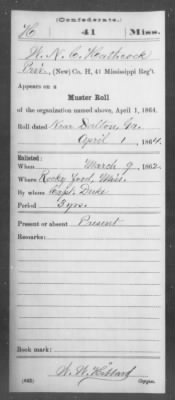 (Confederate.)
H 41 Miss.
W. N. C. Heathcock
Priv., (New) Co. H, 41 Mississippi Reg't
Appears on a
Muster Roll
of the organization named above, April 1, 1864.
Roll dated Near Dalton, Ga.
April 1, 1864.
Enlisted:
When March 9, 1862.
Where Rocky Ford, Miss.
By whom Capt. Duke
Period 3 yrs.
Present or absent Present
Remarks:
Book mark:
W. W. Hibbard
Copyist.